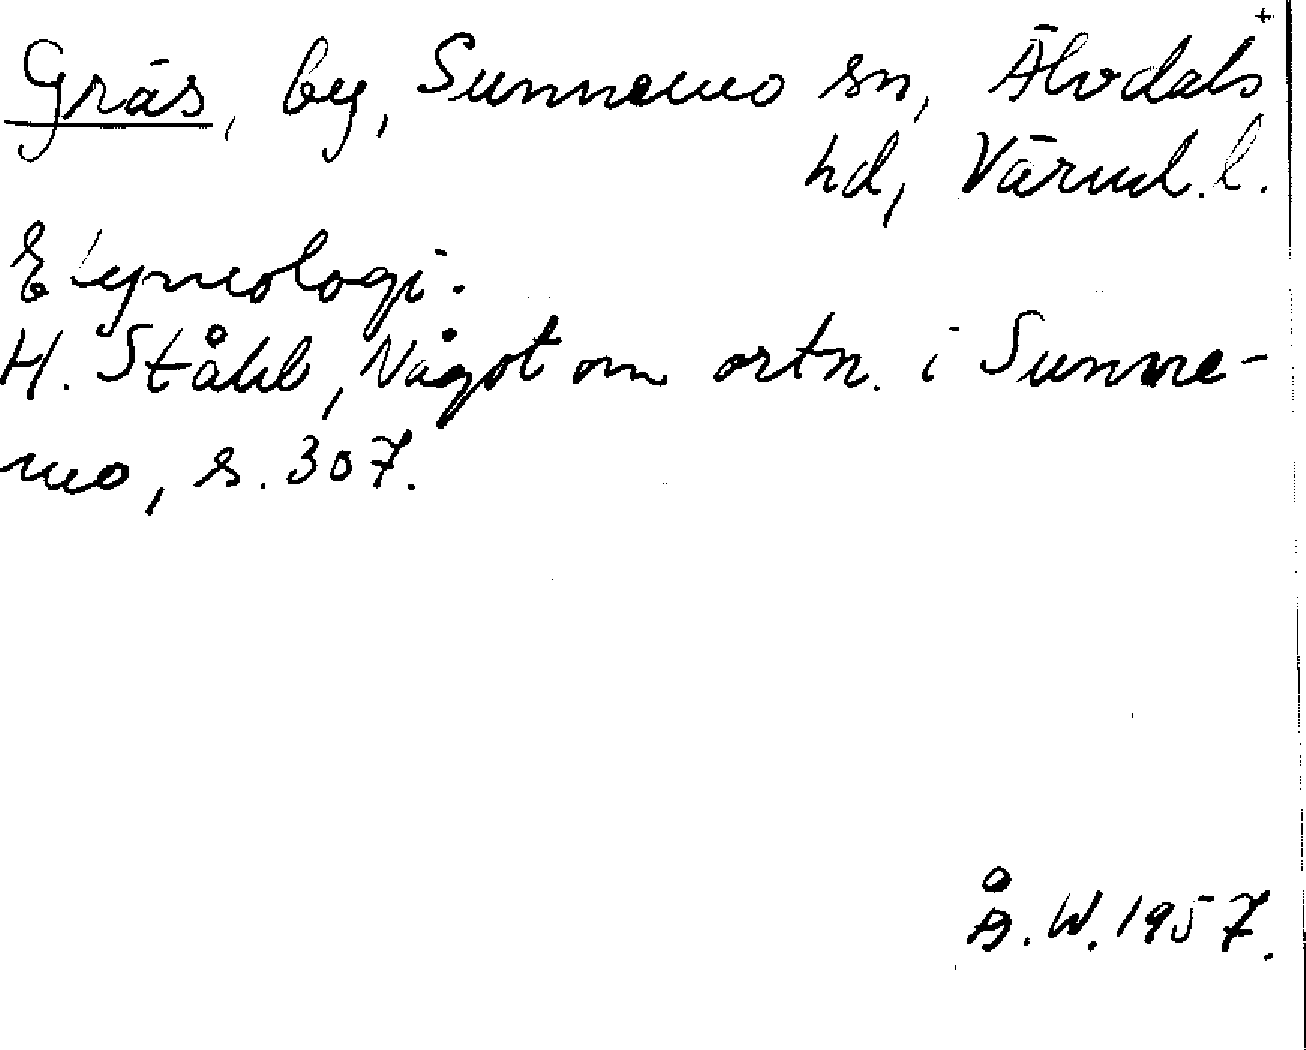 +
Gräs, by, Sunnemo sn, Älvdals
hd, Värml. l.
Etymologi.
H. Ståhl, Något om ortn. i Sunne-
mo, s. 307.
Å. W. 1957.